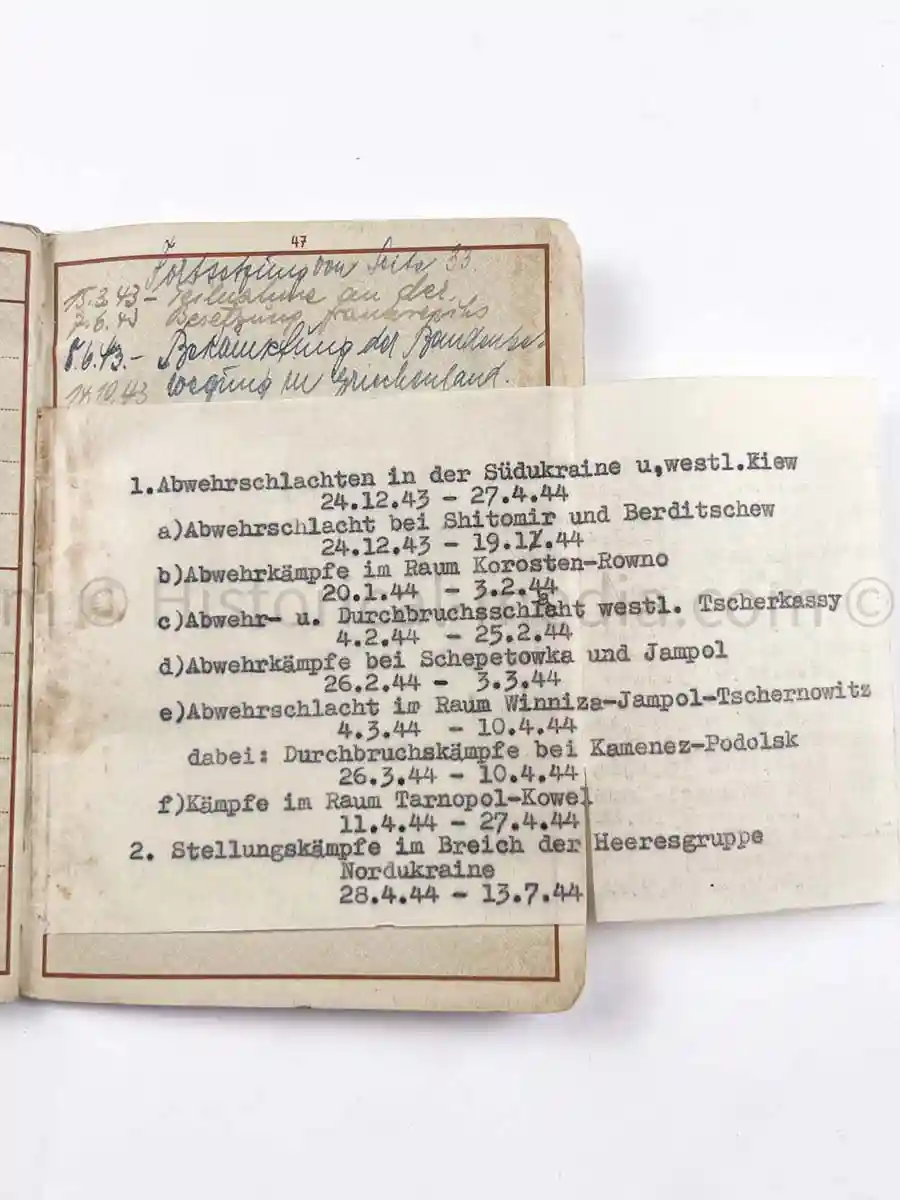 47
Fortsetzung von Seite 33.
15.3.43 – Teilnahme an der
7.6.43 Besetzung Frankreichs
8.6.43. – Bekämpfung der Bandenbe-
14.10.43 wegung in Griechenland.
1.Abwehrschlachten in der Südukraine u,westl.Kiew
24.12.43 - 27.4.44
a)Abwehrschlacht bei Shitomir und Berditschew
24.12.43 - 19.1.44
b)Abwehrkämpfe im Raum Korosten-Rowno
20.1.44 - 3.2.44
c)Abwehr- u. Durchbruchsschlaht westl. Tscherkassy
4.2.44 - 25.2.44
d)Abwehrkämpfe bei Schepetowka und Jampol
26.2.44 - 3.3.44
e)Abwehrschlacht im Raum Winniza-Jampol-Tschernowitz
4.3.44 - 10.4.44
dabei: Durchbruchskämpfe bei Kamenez-Podolsk
26.3.44 - 10.4.44
f)Kämpfe im Raum Tarnopol-Kowel
11.4.44 - 27.4.44
2. Stellungskämpfe im Breich der Heeresgruppe
Nordukraine
28.4.44 - 13.7.44